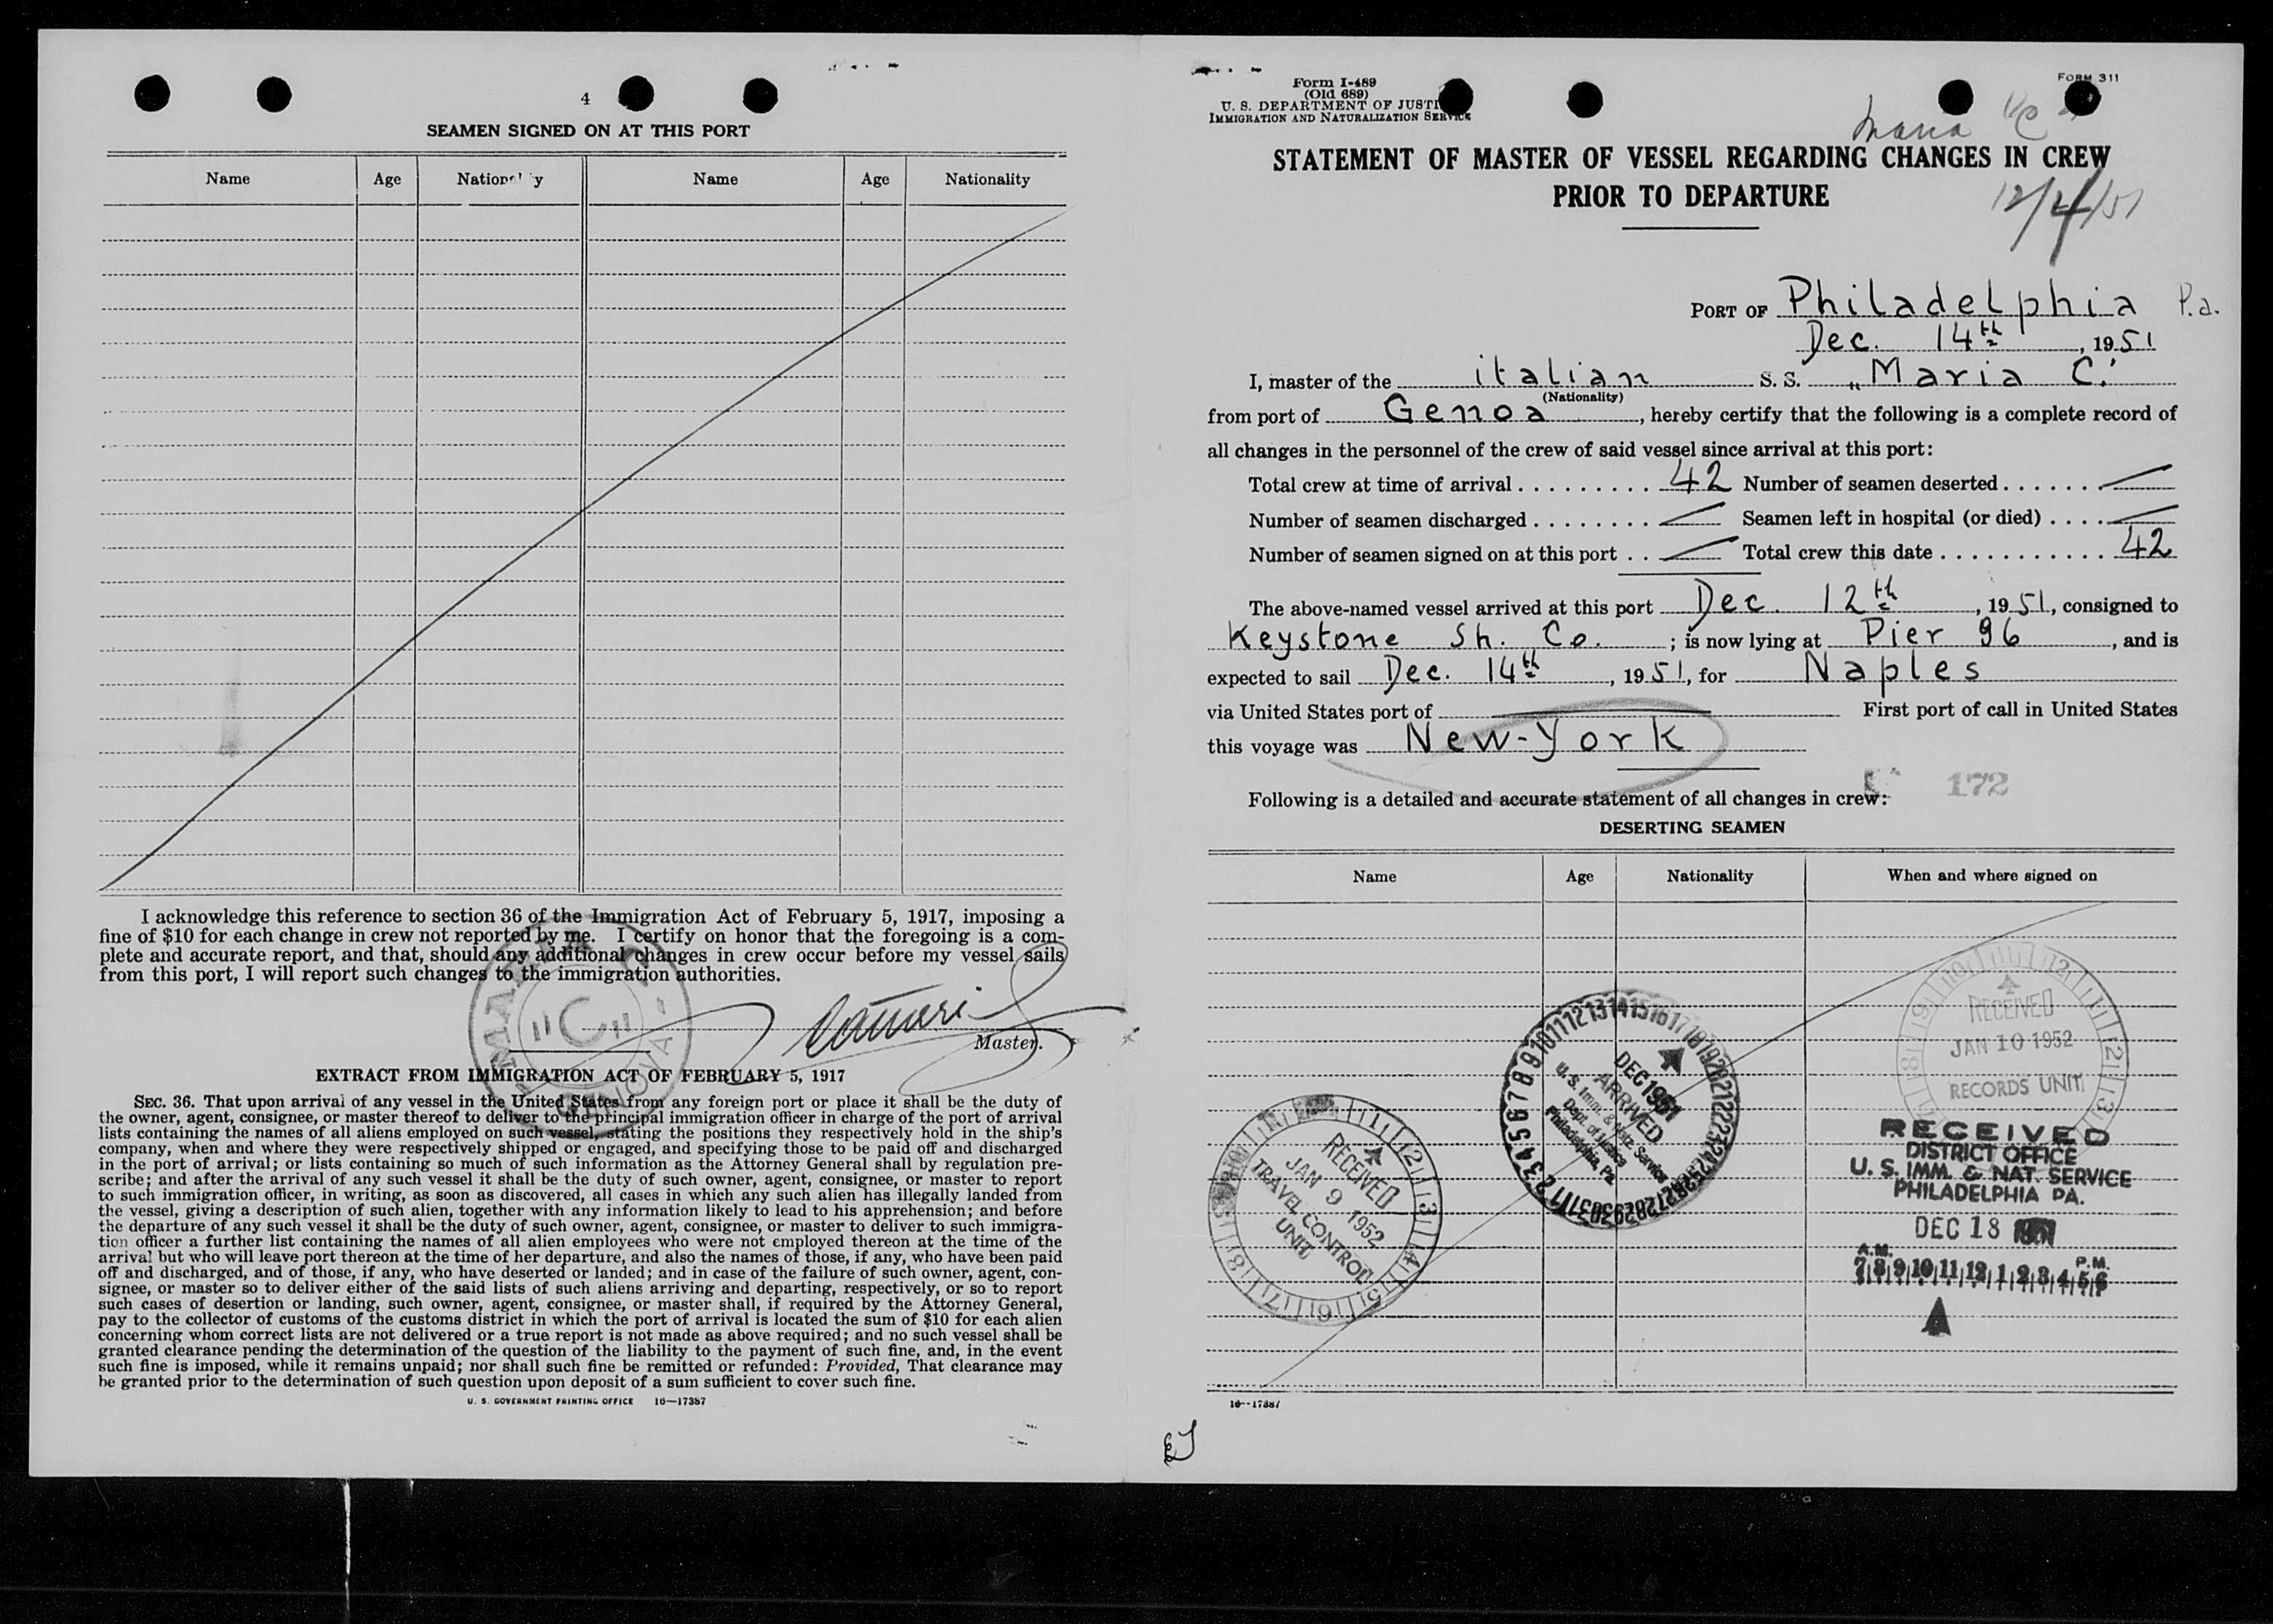 4
SEAMEN SIGNED ON AT THIS PORT
Name Age Nationality Name Age Nationality
I acknowledge this reference to section 36 of the Immigration Act of February 5, 1917, imposing a
fine of $10 for each change in crew not reported by me. I certify on honor that the foregoing is a com-
plete and accurate report, and that, should any additional changes in crew occur before my vessel sails
from this port, I will report such changes to the immigration authorities.
"C"
GENOVA
Master.
EXTRACT FROM IMMIGRATION ACT OF FEBRUARY 5, 1917
SEC. 36. That upon arrival of any vessel in the United States from any foreign port or place it shall be the duty of
the owner, agent, consignee, or master thereof to deliver to the principal immigration officer in charge of the port of arrival
lists containing the names of all aliens employed on such vessel, stating the positions they respectively hold in the ship's
company, when and where they were respectively shipped or engaged, and specifying those to be paid off and discharged
in the port of arrival; or lists containing so much of such information as the Attorney General shall by regulation pre-
scribe; and after the arrival of any such vessel it shall be the duty of such owner, agent, consignee, or master to report
to such immigration officer, in writing, as soon as discovered, all cases in which any such alien has illegally landed from
the vessel, giving a description of such alien, together with any information likely to lead to his apprehension; and before
the departure of any such vessel it shall be the duty of such owner, agent, consignee, or master to deliver to such immigra-
tion officer a further list containing the names of all alien employees who were not employed thereon at the time of the
arrival but who will leave port thereon at the time of her departure, and also the names of those, if any, who have been paid
off and discharged, and of those, if any, who have deserted or landed; and in case of the failure of such owner, agent, con-
signee, or master so to deliver either of the said lists of such aliens arriving and departing, respectively, or so to report
such cases of desertion or landing, such owner, agent, consignee, or master shall, if required by the Attorney General,
pay to the collector of customs of the customs district in which the port of arrival is located the sum of $10 for each alien
concerning whom correct lists are not delivered or a true report is not made as above required; and no such vessel shall be
granted clearance pending the determination of the question of the liability to the payment of such fine, and, in the event
such fine is imposed, while it remains unpaid; nor shall such fine be remitted or refunded: Provided, That clearance may
be granted prior to the determination of such question upon deposit of a sum sufficient to cover such fine.
U. S. GOVERNMENT PRINTING OFFICE 16—17387
Form I-489
(Old 689)
U. S. DEPARTMENT OF JUSTI
IMMIGRATION AND NATURALIZATION SERVICE
FORM 311
Maria C
STATEMENT OF MASTER OF VESSEL REGARDING CHANGES IN CREW
PRIOR TO DEPARTURE
PORT OF Philadelphia P.a.
Dec. 14th, 1951
I, master of the italian S. S. „Maria C."
(Nationality)
from port of Genoa, hereby certify that the following is a complete record of
all changes in the personnel of the crew of said vessel since arrival at this port:
Total crew at time of arrival . . . . . . . . . 42 Number of seamen deserted . . . . . . . —
Number of seamen discharged . . . . . . . . — Seamen left in hospital (or died) . . . . —
Number of seamen signed on at this port . . — Total crew this date . . . . . . . . . . . 42
The above-named vessel arrived at this port Dec. 12th, 1951, consigned to
Keystone Sh. Co. ; is now lying at Pier 96, and is
expected to sail Dec. 14th, 1951, for Naples
via United States port of — First port of call in United States
this voyage was New-York
172
Following is a detailed and accurate statement of all changes in crew:
DESERTING SEAMEN
Name Age Nationality When and where signed on
RECEIVED
JAN 10 1952
RECORDS UNIT
DEC 1951
ARRIVED
U. S. Imm. & Natz. Service
Dept. of Justice
Philadelphia, Pa.
RECEIVED
JAN 9 1952
TRAVEL CONTROL
UNIT
RECEIVED
DISTRICT OFFICE
U. S. IMM. & NAT. SERVICE
PHILADELPHIA PA.
DEC 18 1951
A.M. P.M.
7 8 9 10 11 12 1 2 3 4 5 6
16—17387